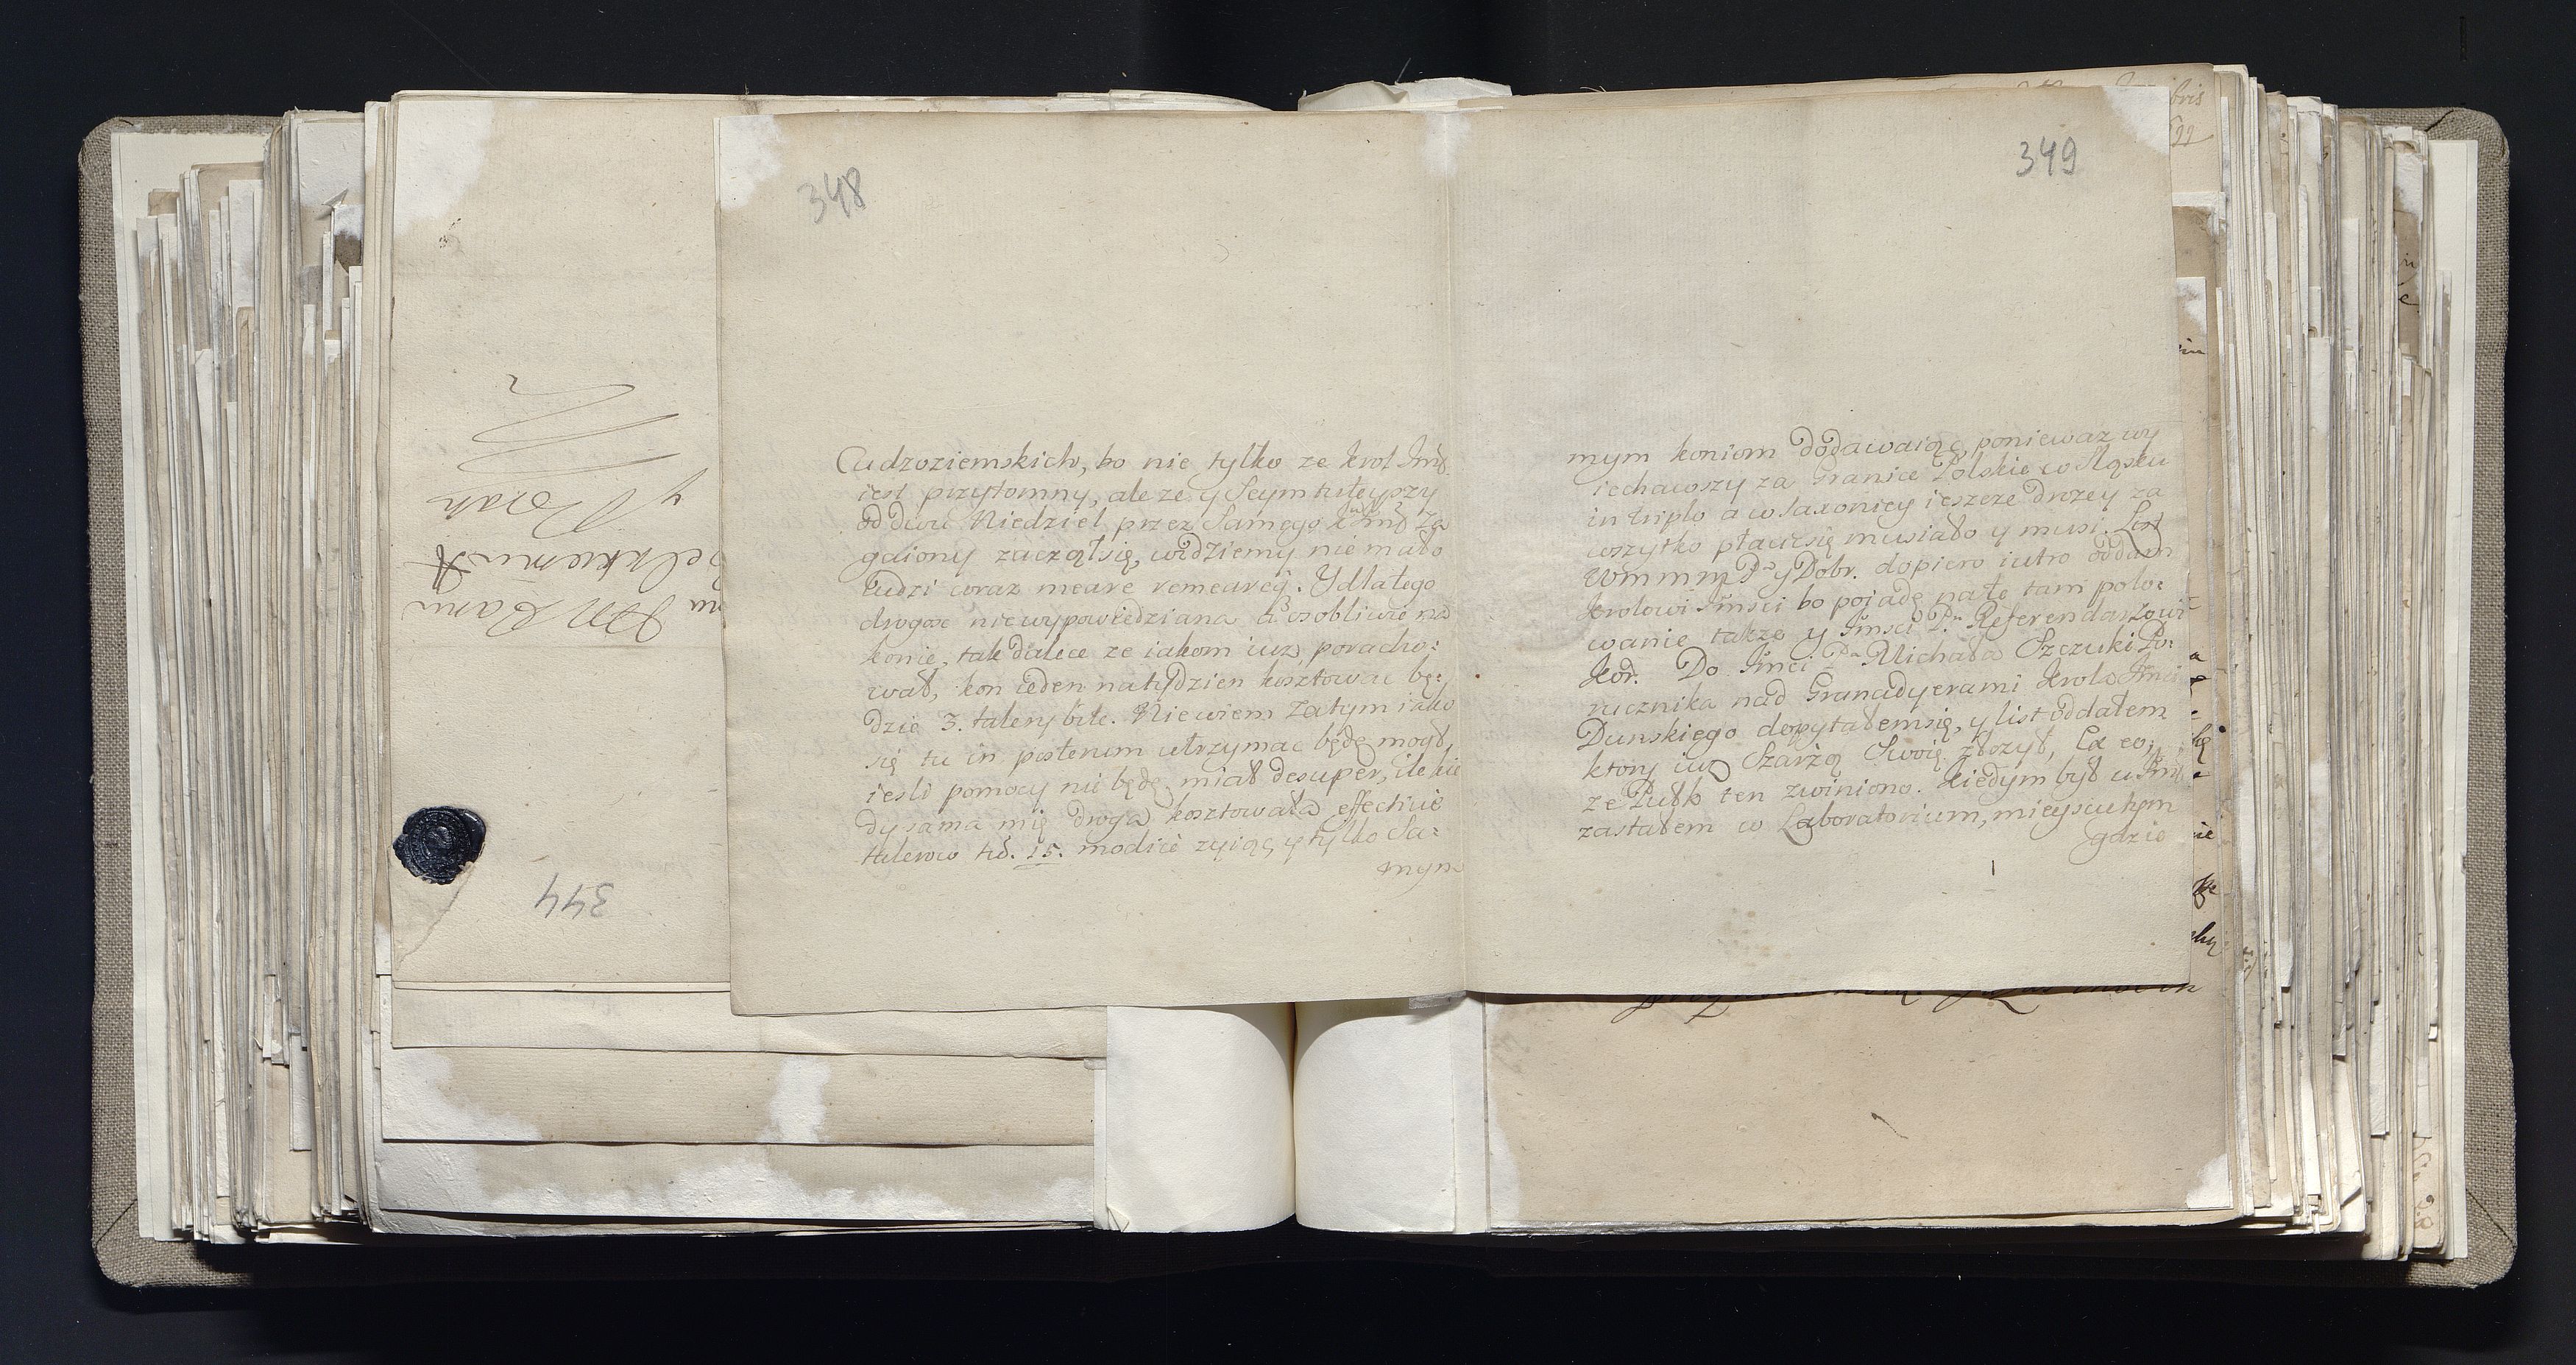 348
Cudzoziemskich, bo nie tylko ze Krol Jmć
iest przytomny, ale ze y Seym tuteyszy
od dwu Niedziel przez Samego Kr Jmć Za
gaiony zacząłsię, widziemy nie mało
ludzi wraz meare remeareq. Ydlatego
drogosc niewypowiedziana a osobliwie na
konie, tak dalece ze iakom iuz poracho:
wał, kon ieden natydzien kosztowac bę:
dzie 3. talery bite. Niewiem Zatym iako
się tu in posterum utrzymac będę mogł,
iesli pomocy nie będę miał desuper, ile kie
dy sama mię droga kosztowała effective
talerow tił. 15. modice zyiąc, y tylko Sa:
mym
349
mym koniom dodawaiąc, poniewaz wy
iechawszy za Granice Polskie w Sląsku
in triplo a w Saxoniey ieszcze drozey za
wszytko płacicsię musiało y musi. List
Wmmm Pa y Dobr. dopiero iutro oddam
Krolowi Jmsci bo poiadę natę tam polo:
wanie takze y Jmsci Pu Referendarzowi
Kor. Do Jmci Pa Michała Szczuki Po:
rucznika nad Granadyerami Krola Jmci
Dunskiego dopytałemsię, y list oddałem
ktory iuz Szarzą Swoię złozył, Ex eo,
ze Pułk ten zwiniono. Kiedym był u Jmć
zastałem w Laboratorium, mieyscu tym
gdzie
344